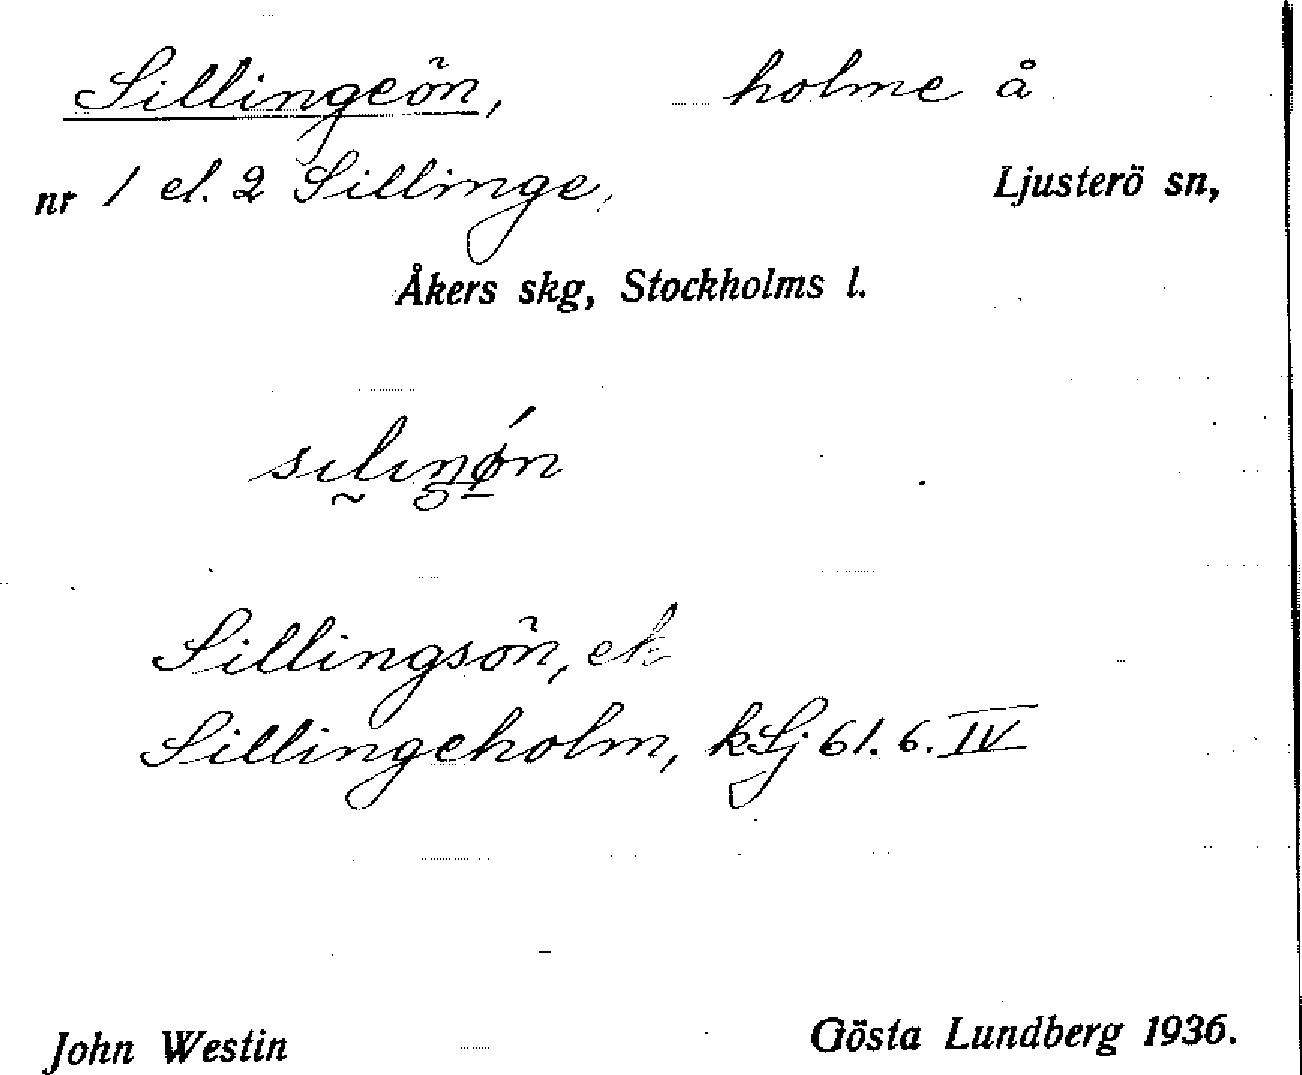 Sillingeön, holme å
nr 1 el. 2 Sillinge, Ljusterö sn,
Åkers skg, Stockholms l.
Sillingsön, ek
Sillingeholm, kLj 61. 6. IV
John Westin Gösta Lundberg 1936.